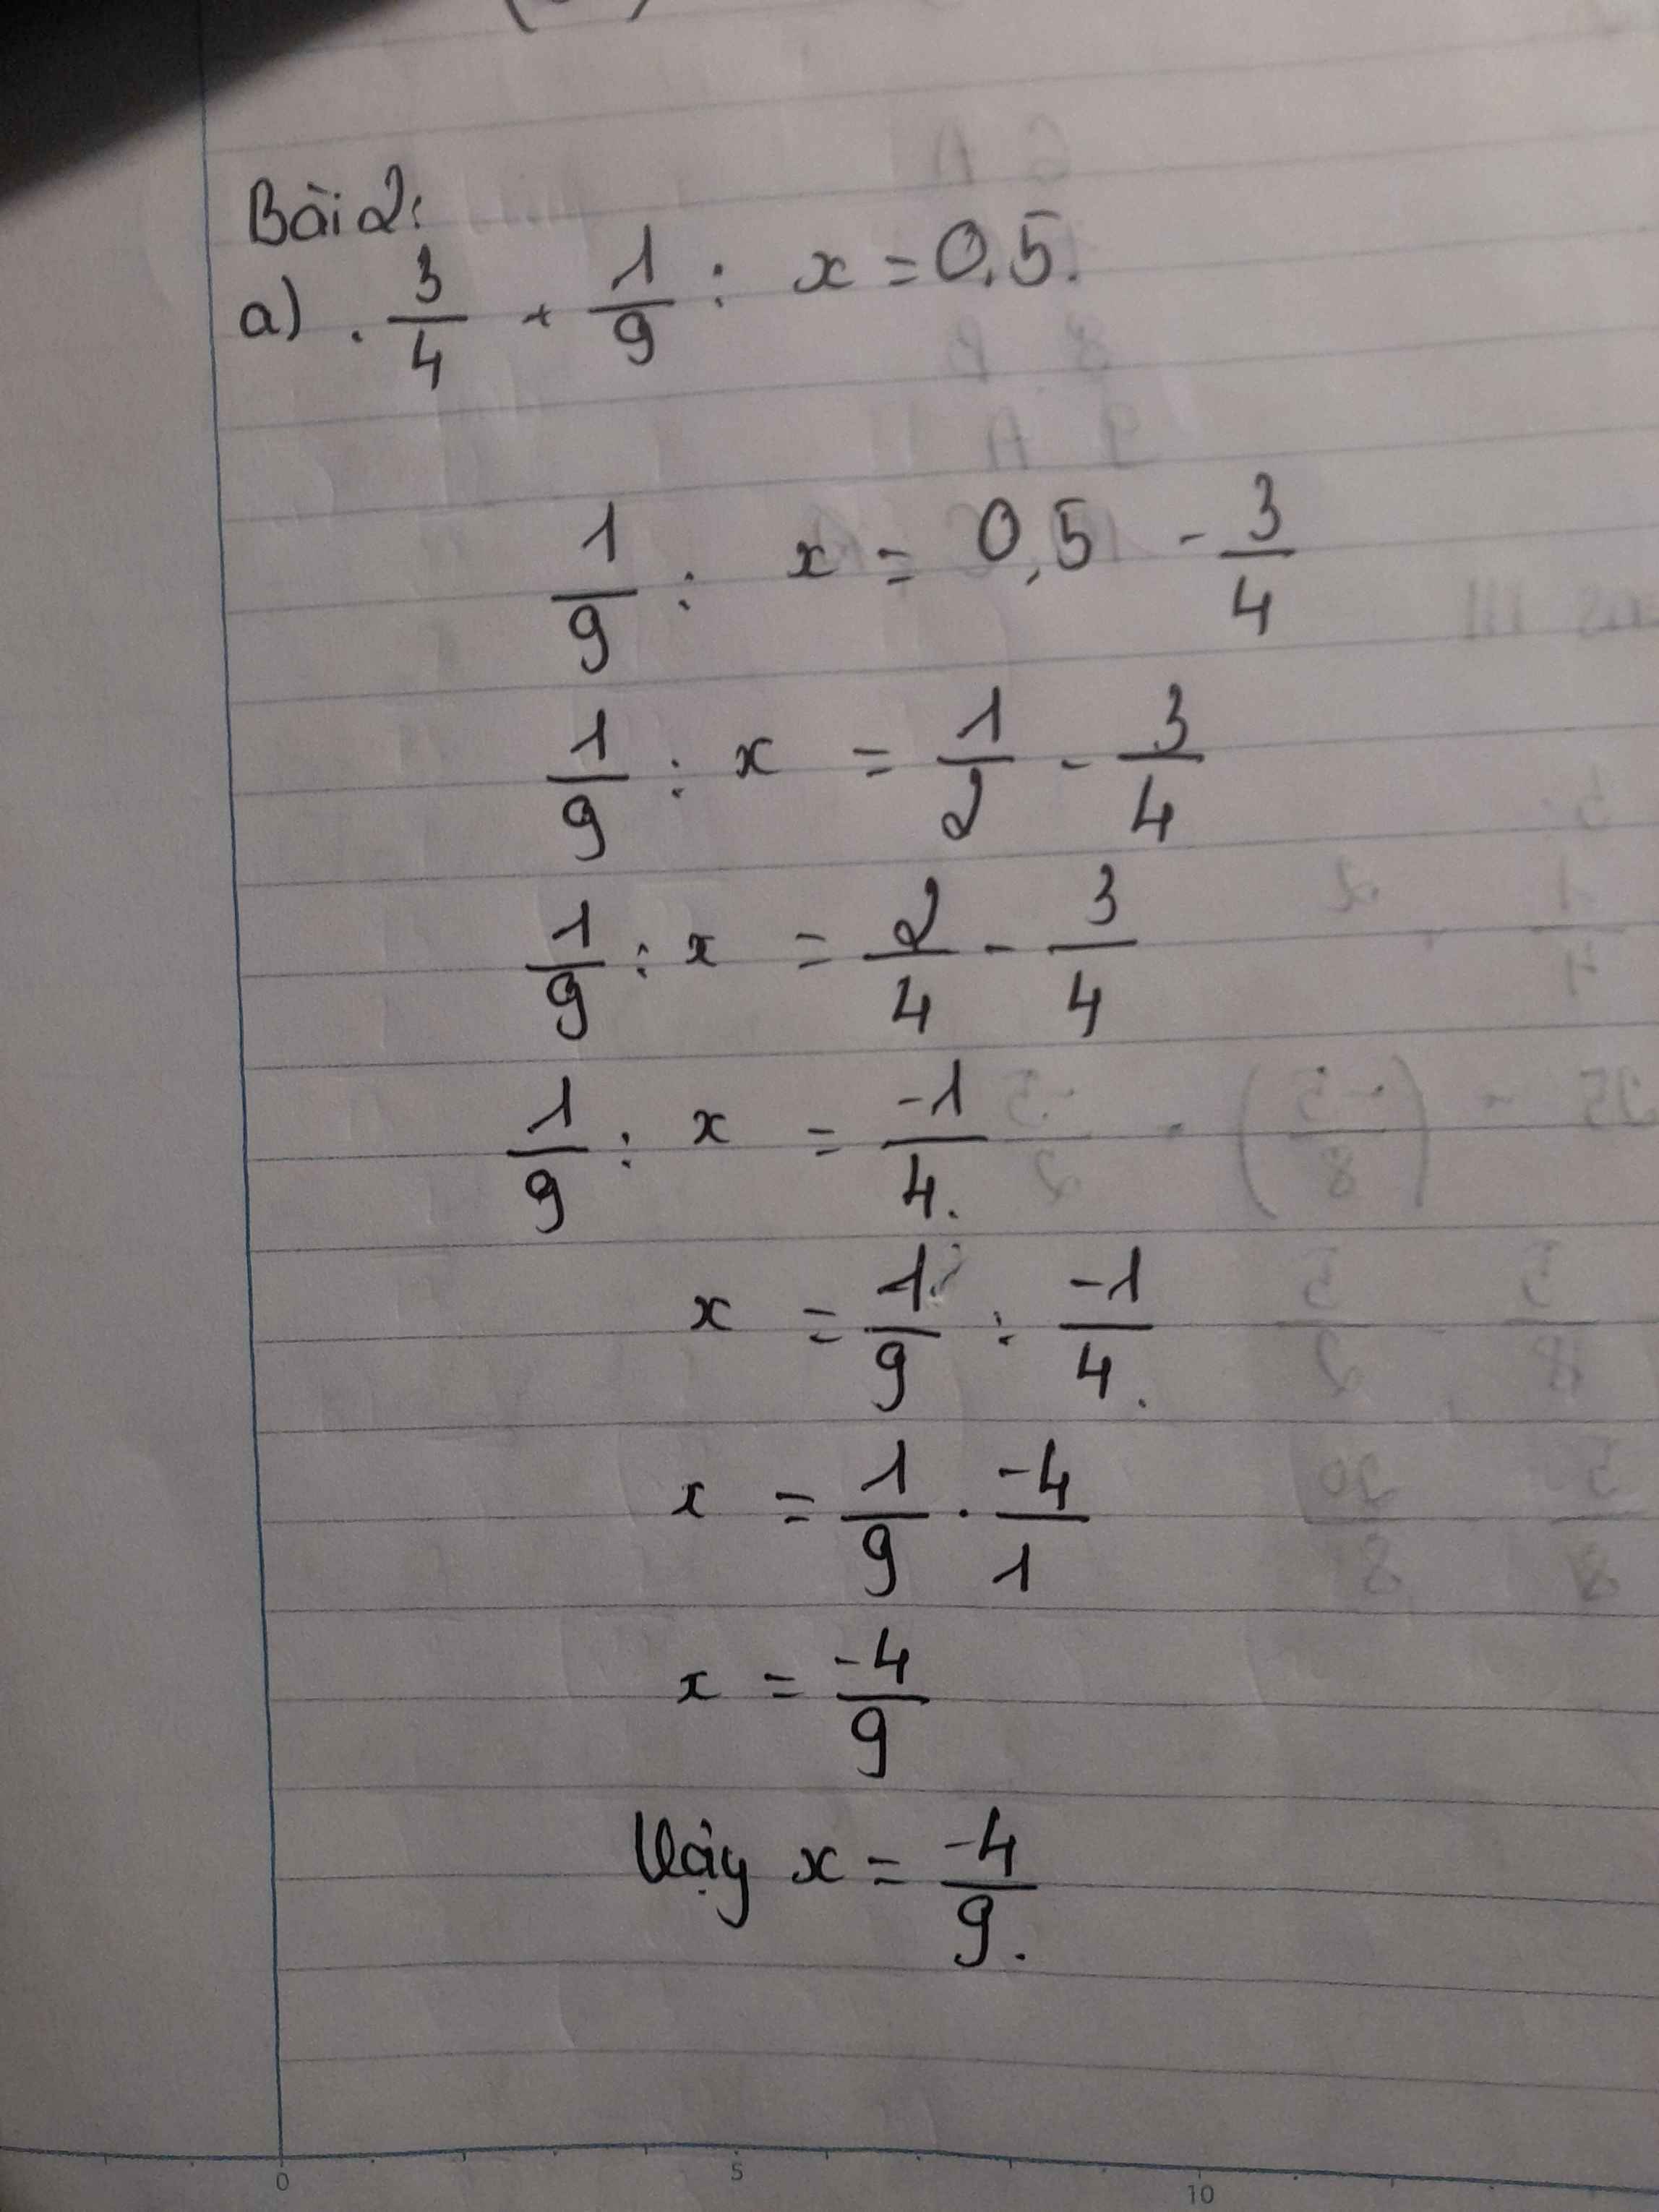 Bài 2:
a) . 3/4 + 1/9 : x = 0,5.
1/9 : x = 0,5 - 3/4
1/9 : x = 1/2 - 3/4
1/9 : x = 2/4 - 3/4
1/9 : x = -1/4.
x = 1/9 : -1/4.
x = 1/9 . -4/1
x = -4/9
Vậy x = -4/9.
0 5 10